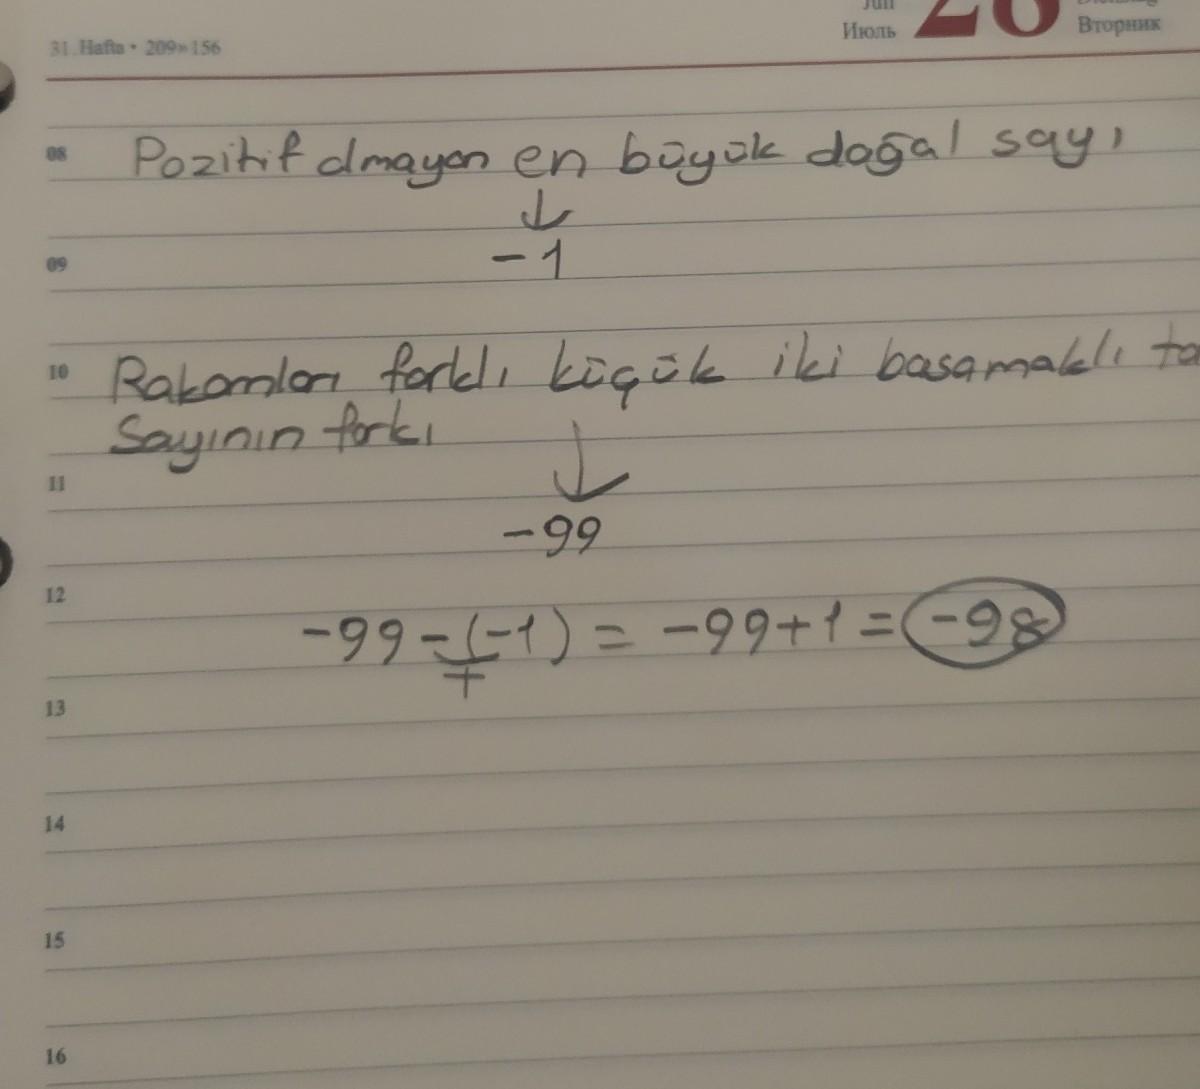 31. Hafta • 209»156
Июль
28
Вторник
08 Pozitif olmayan en büyük doğal sayı
↓
09 -1
10 Rakamları farklı küçük iki basamaklı ta
Sayının farkı
↓
11
-99
12
-99-(-1) = -99+1 = -98
+
13
14
15
16